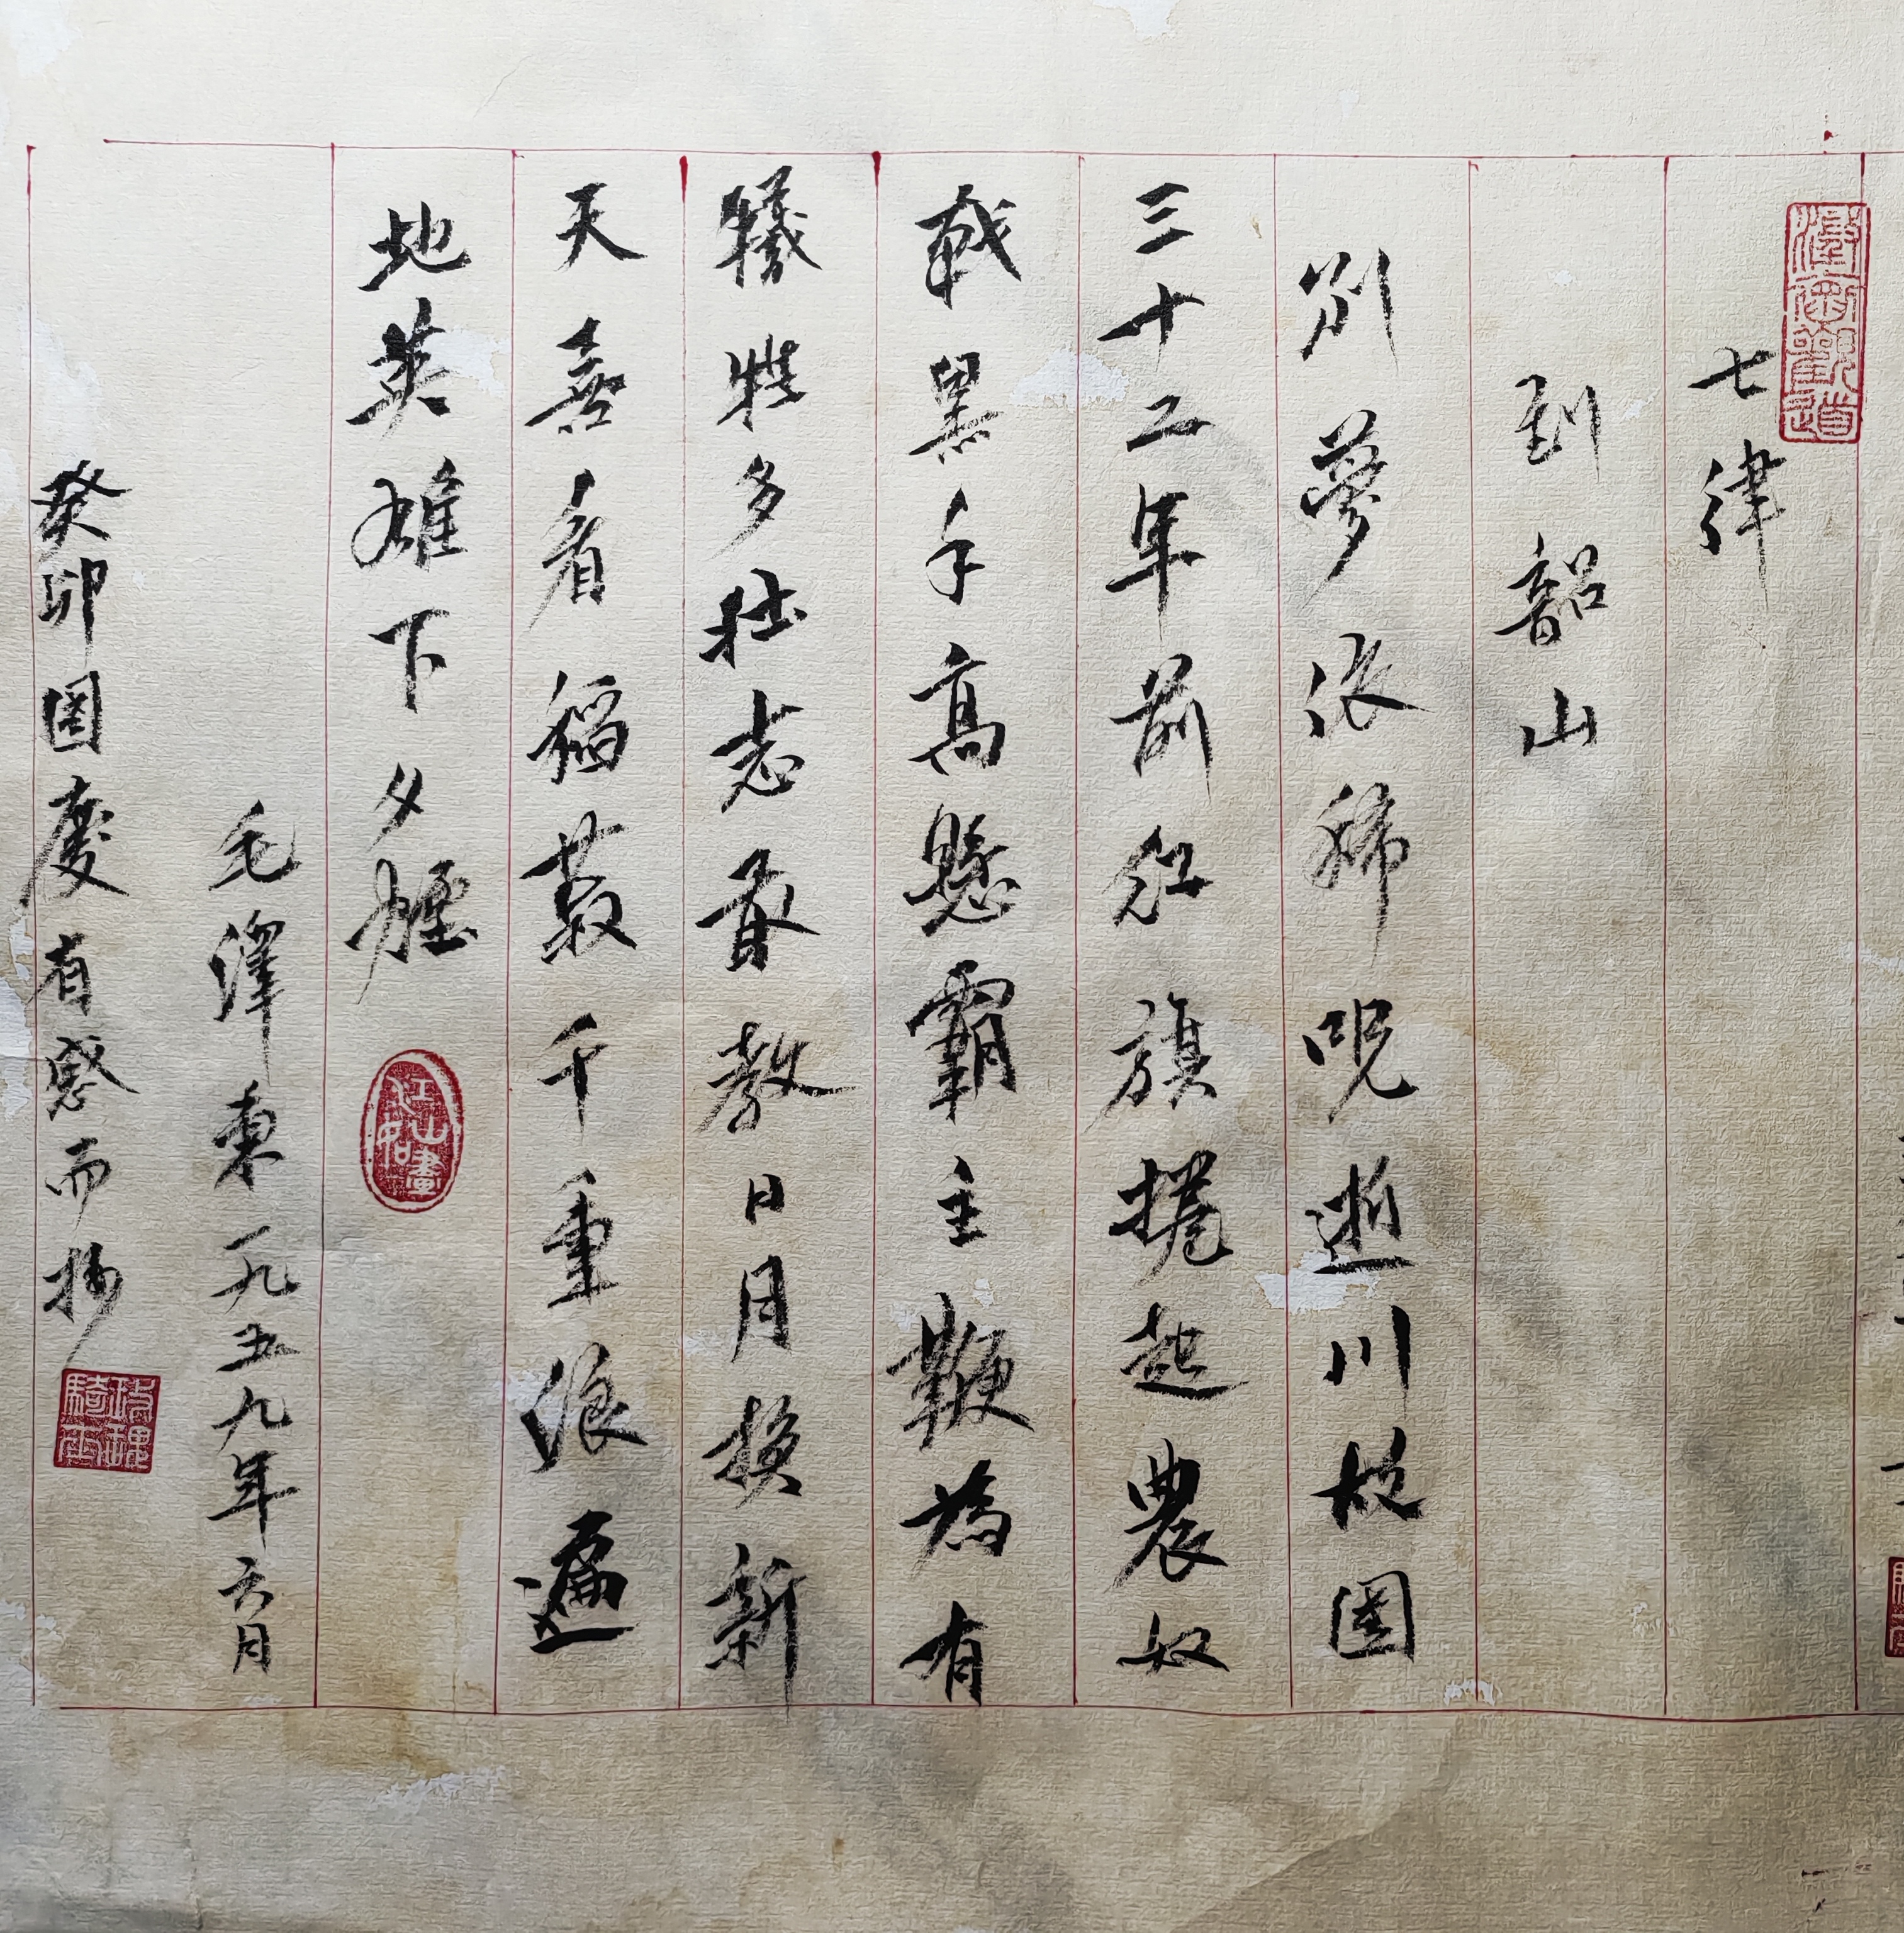 七律
到韶山
别夢依稀咒逝川故園
三十二年前红旗捲起農奴
戟黑手高懸霸主鞭為有
犧牲多壮志敢教日月換新
天喜看稻菽千重浪遍
地英雄下夕煙
江山如畫
毛澤東一九五九年六月
癸卯国慶有感而抄